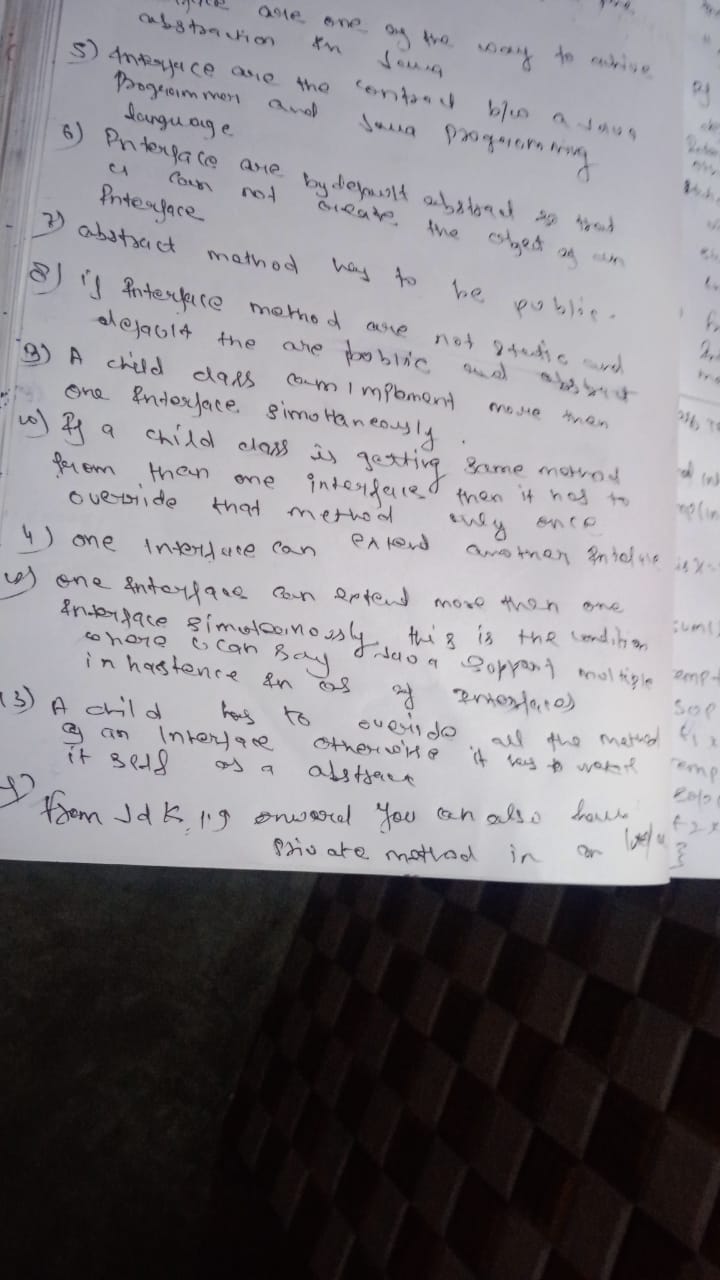 are one of the way to achive
abstraction in Java
5) Interface are the contract b/w a Java
Programmer and Java programming
language
6) Interface are bydefault abstract so that
u can not create the object of an
Interface
7) abstract method has to be public.
8) if Interface method are not static and
default the are public and abstract
9) A child class can implement more then
one Interface simultaneously.
10) If a child class is getting same method
from then one interface then it has to
override that method only once
4) one Interface can extend another Interface
one Interface can extend more then one
Interface simultaneously, this is the condition
where u can say Java support multiple
in hastence in as of Interfaces
13) A child has to override all the method
of an Interface otherwise it has to
it self as a abstract
from Jdk 1.9 onward You can also have
private method in an